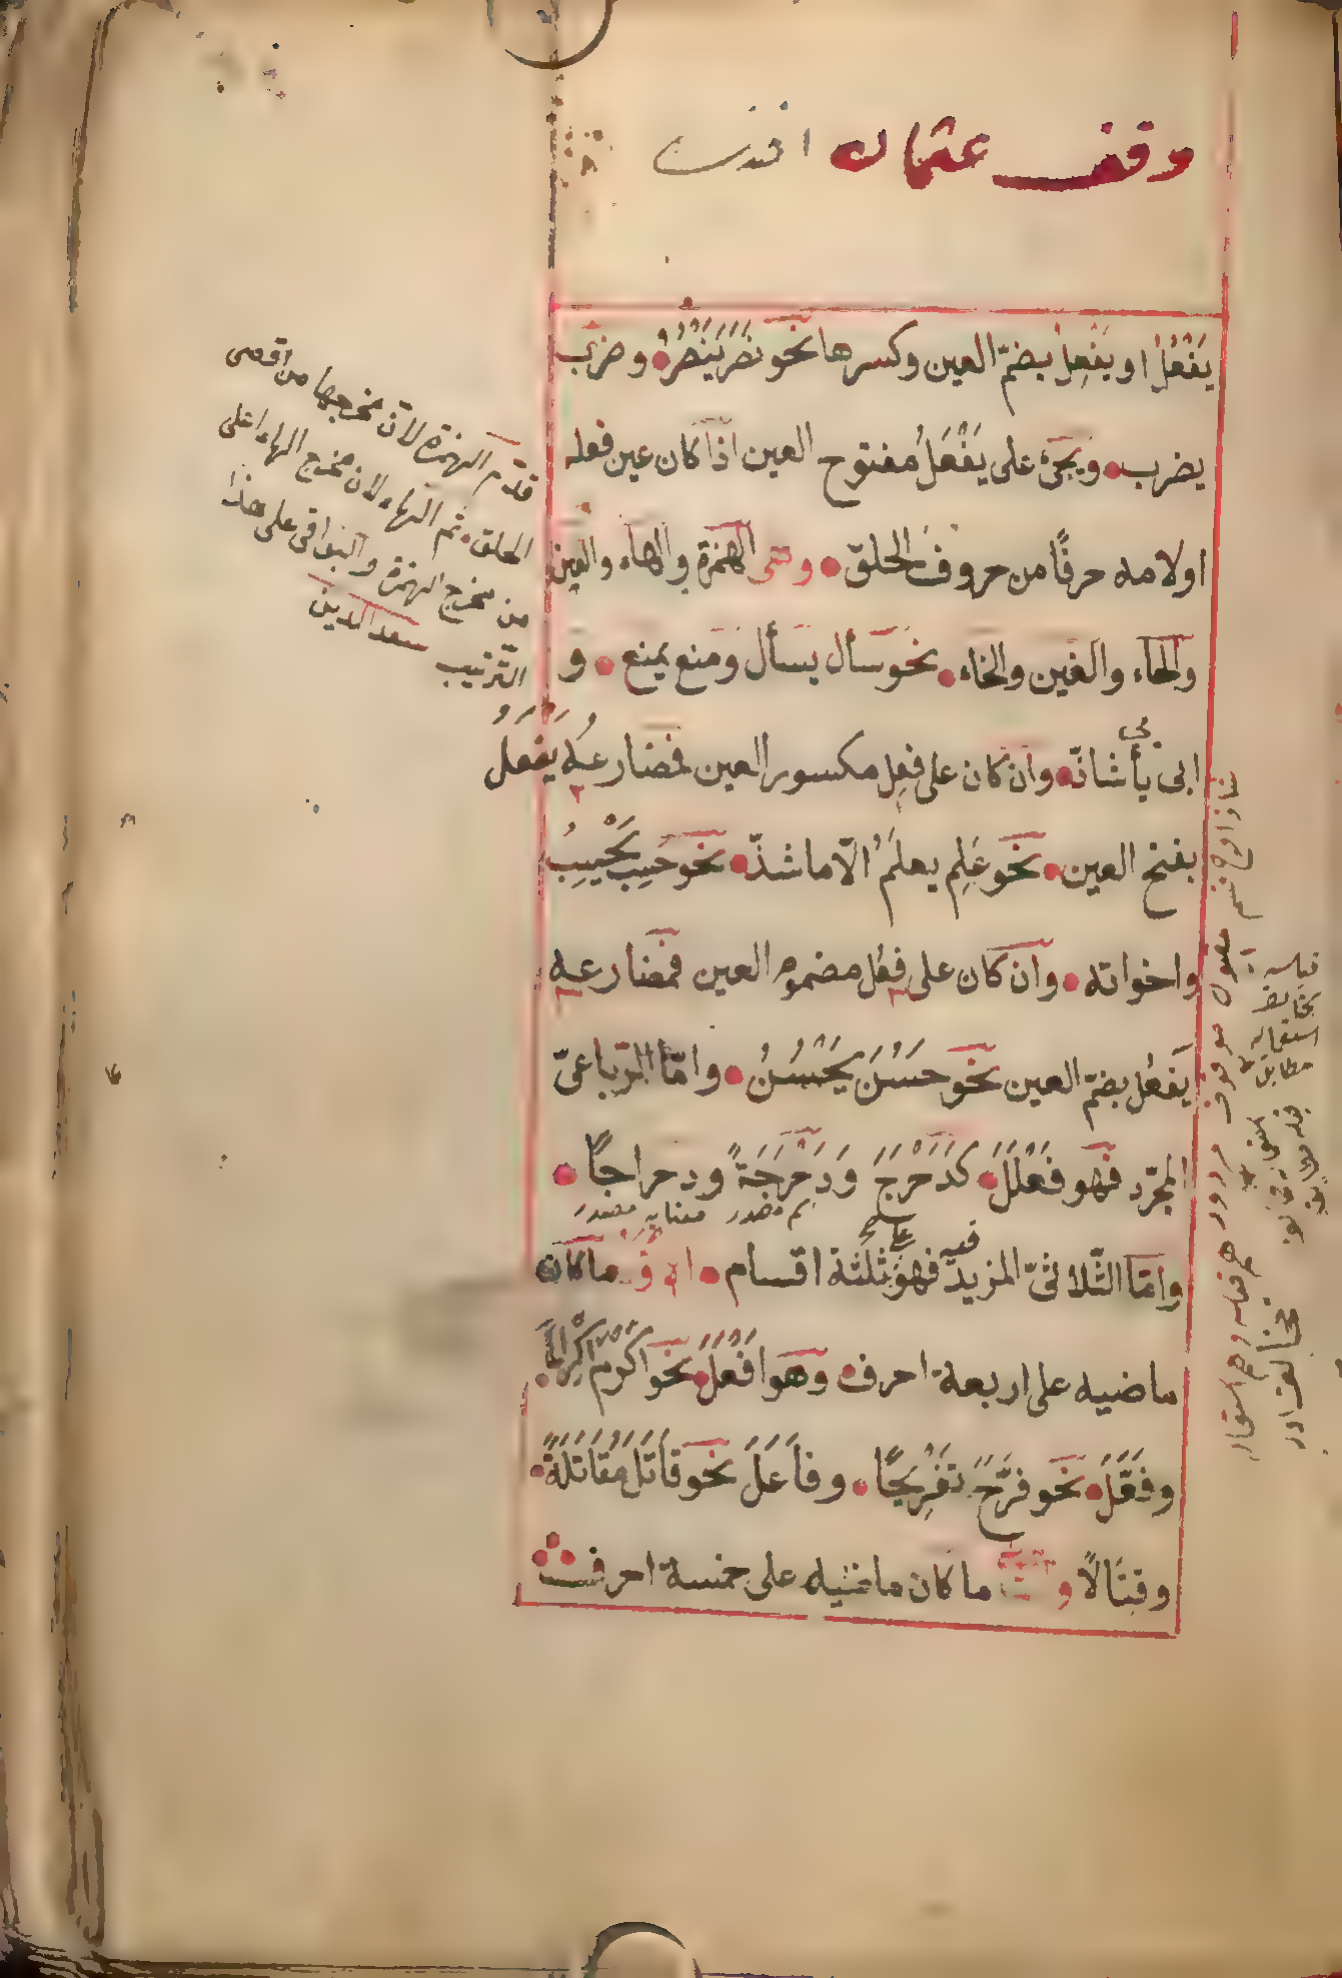 وقف عثمان افندى
يَفْعُلُ او يَفْعِلُ بضمّ العين وكسرها نحو نصَرَ يَنْصُرُ وضرَبَ
يضرب ويجئ على يَفْعَلُ مفتوح العين اذا كان عين فعله
او لامه حرفًا من حروف الحلق وهى الهمزة والهاء والعين
والحاء والغين والخاء نحو سأل يسأل ومنع يمنع و
ابى يأبى شاذّ وان كان على فعِل مكسور العين فمضارعه يَفعَلُ
بفتح العين نحو عَلِم يعلَمُ الّا ما شذّ نحو حَسِب يَحْسِبُ
واخواته وان كان على فعُل مضموم العين فمضارعه
يَفعُل بضمّ العين نحو حَسُنَ يَحْسُنُ وامّا الرّباعىّ
المجرّد فهو فَعْلَلَ كَدَحْرَجَ وَدَحْرَجَةً ودحراجًا
مصدر مصدر
وامّا الثّلاثىّ المزيد فيه فهو على ثلثة اقسام ما كان
ماضيه على اربعة احرف وهو اَفْعَلَ نحو اَكْرَمَ اِكْرَامًا
وفَعَّلَ نحو فرَّحَ تفْرِيحًا وفَاعَلَ نحو قَاتَلَ مُقَاتَلَةً
وقِتَالًا و ما كان ماضيه على خمسة احرف
قدّم الهمزة لانّ مخرجها من اقصى
الحلق ثم الهاء لان مخرج الهاء اعلى
من مخرج الهمزة والبواقى على هذا
التّرتيب سعد الدين